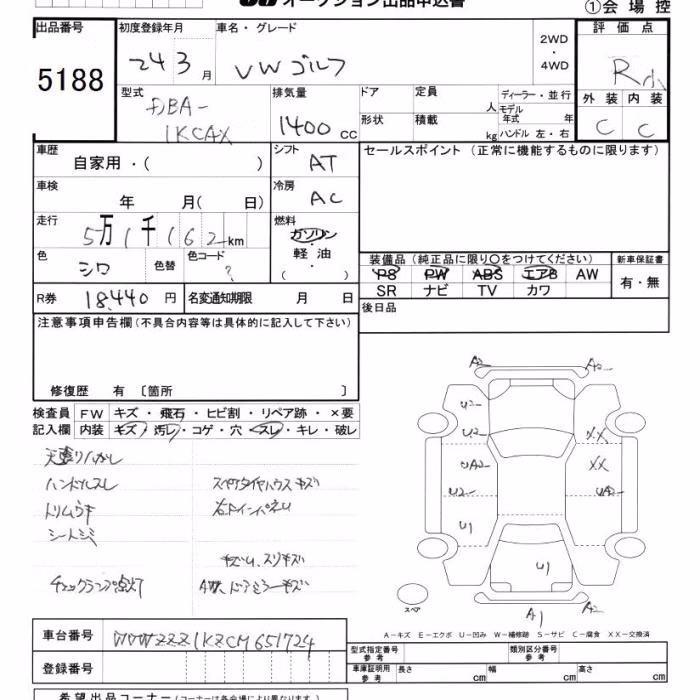 オークション出品申込書
①会場控
出品番号 5188
初度登録年月 24 3月
車名・グレード VWゴルフ
2WD・4WD
評価点 R小
外装 C 内装 C
型式 DBA-1KCAX
排気量 1400cc
ドア
形状
定員 人
積載 kg
ディーラー・並行
モデル年式 年
ハンドル 左・右
車歴 自家用・( )
シフト AT
セールスポイント（正常に機能するものに限ります）
車検 年 月( 日)
冷房 AC
走行 5万1千162km
燃料 ガソリン・軽油・( )
色 シロ 色替 色コード ?
装備品（純正品に限り○をつけてください） 新車保証書
PS PW ABS エアB AW 有・無
SR ナビ TV カワ
R券 18,440円 名変通知期限 月 日
後日品
注意事項申告欄（不具合内容等は具体的に記入して下さい）
修復歴 有〔箇所 〕
検査員 FW キズ・飛石・ヒビ割・リペア跡・×要
記入欄 内装 キズ・汚レ・コゲ・穴・スレ・キレ・破レ
天張りハガレ
ハンドルスレ スペアタイヤハウスキズ
トリムウキ 右下インパネU
シートシミ
キズU、スリキズ
チェックランプ点灯 ドアミラーキズ
A2 A2
U2
U2 XX
UA2 XX
U2
U1
U1
A1 A2
スペア
A－キズ E－エクボ U－凹み W－補修跡 S－サビ C－腐食 XX－交換済
車台番号 WVWZZZ1KZCM651724
登録番号
型式指定番号 参考 類別区分番号 参考
車庫証明用 参考 長さ cm 幅 cm 高さ cm
希望出品コーナー（コーナーは各会場により異なります。）